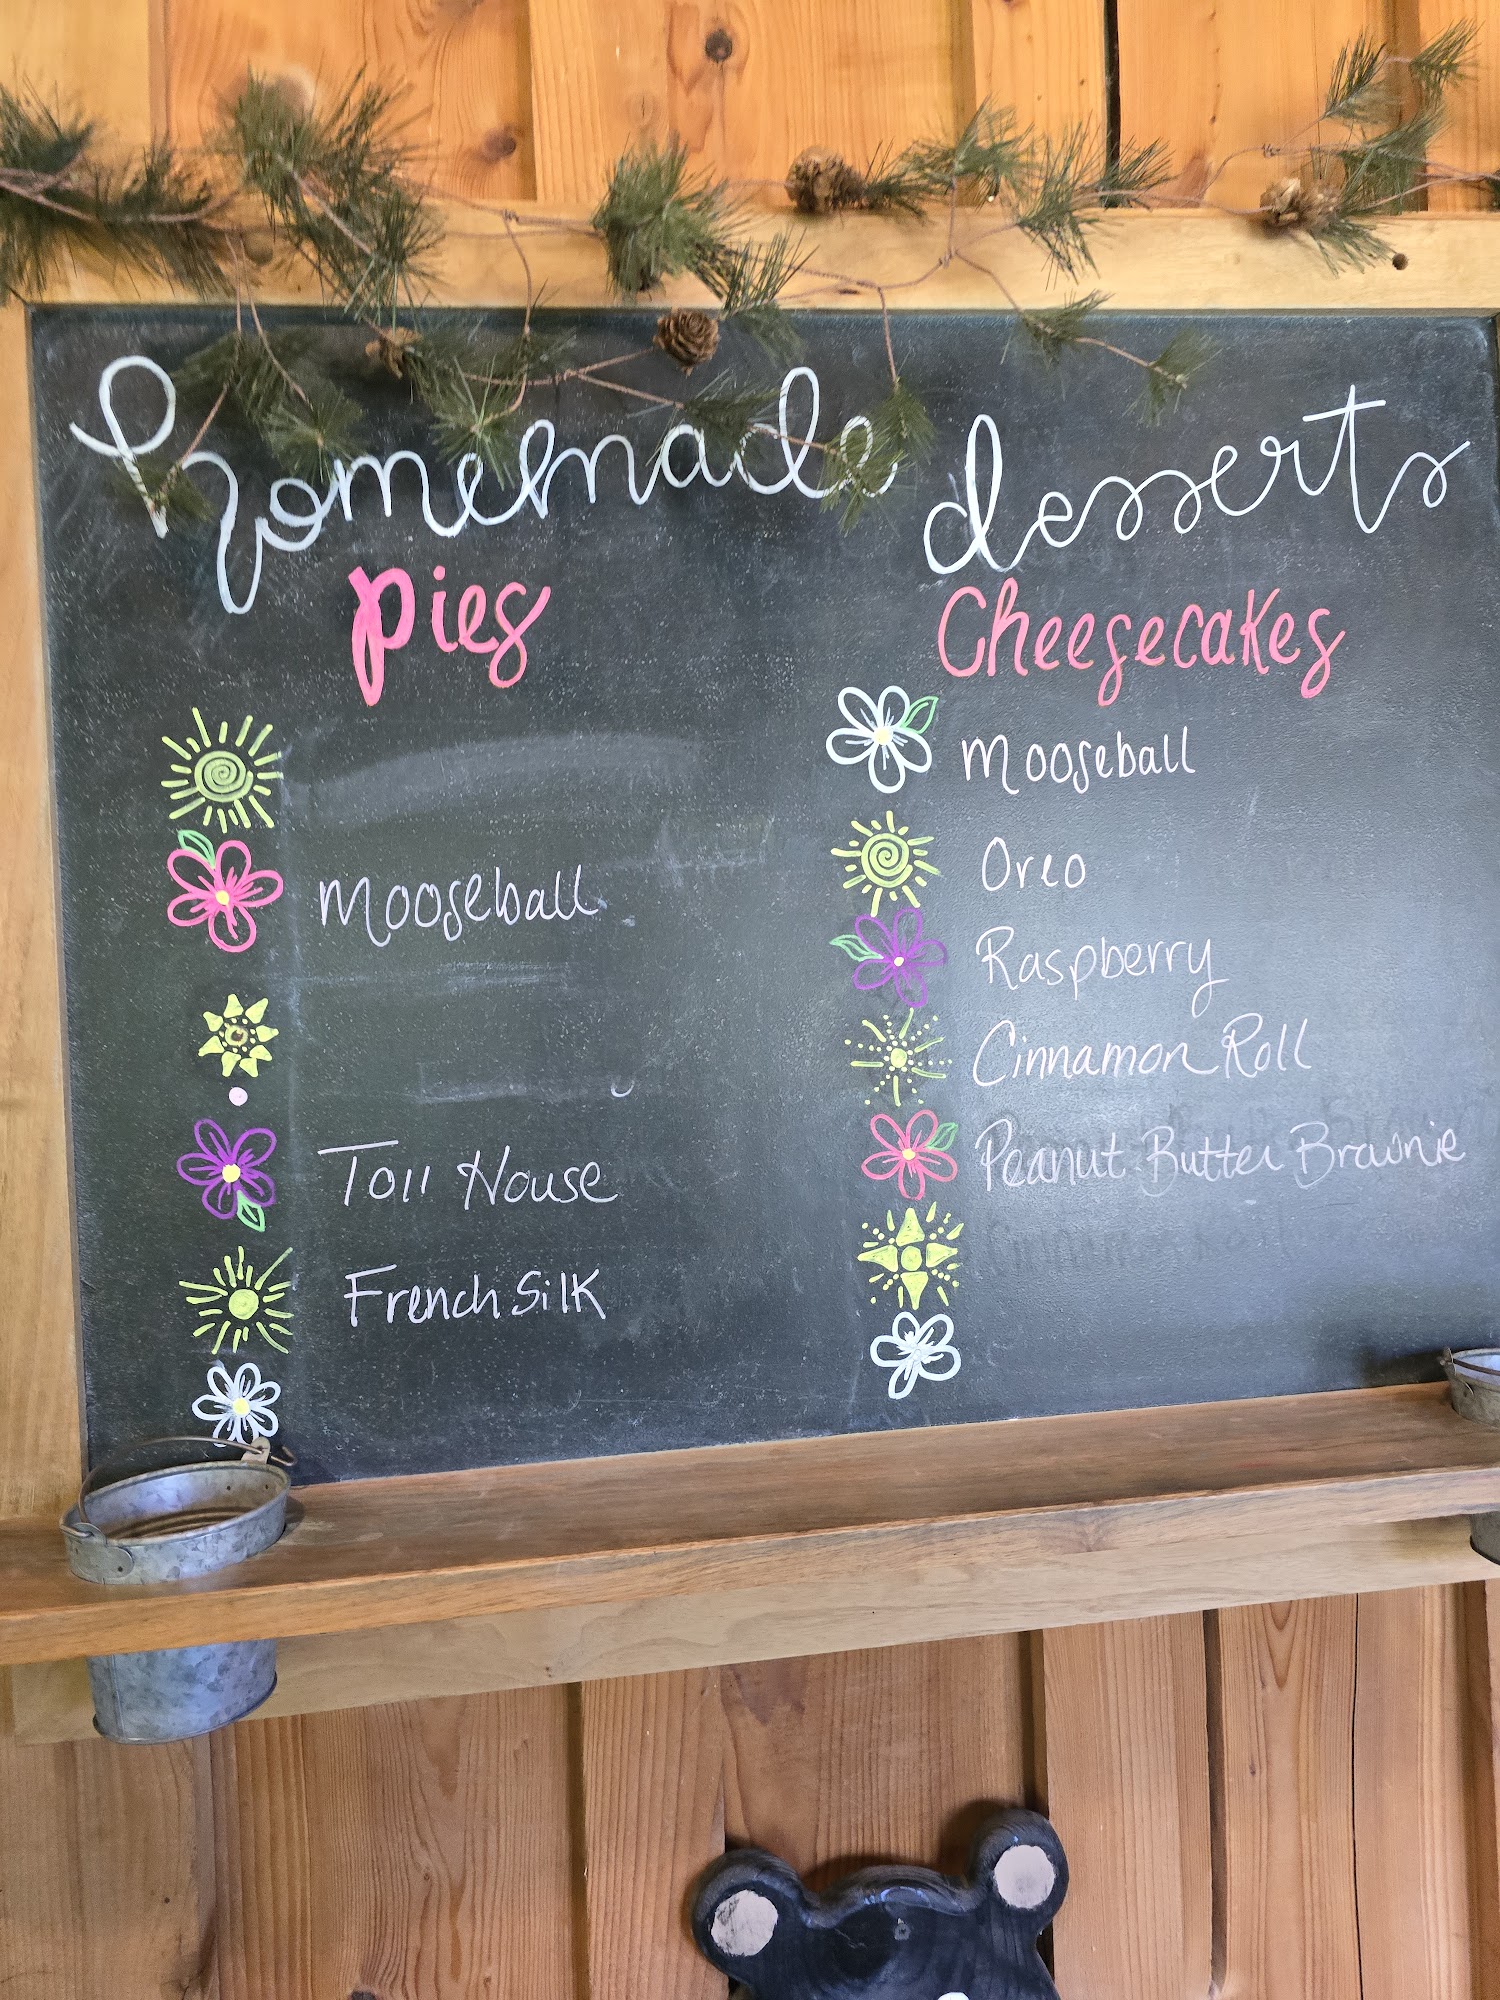 homemade desserts
Pies
Mooseball
Toll House
French Silk
Cheesecakes
Mooseball
Oreo
Raspberry
Cinnamon Roll
Peanut Butter Brownie